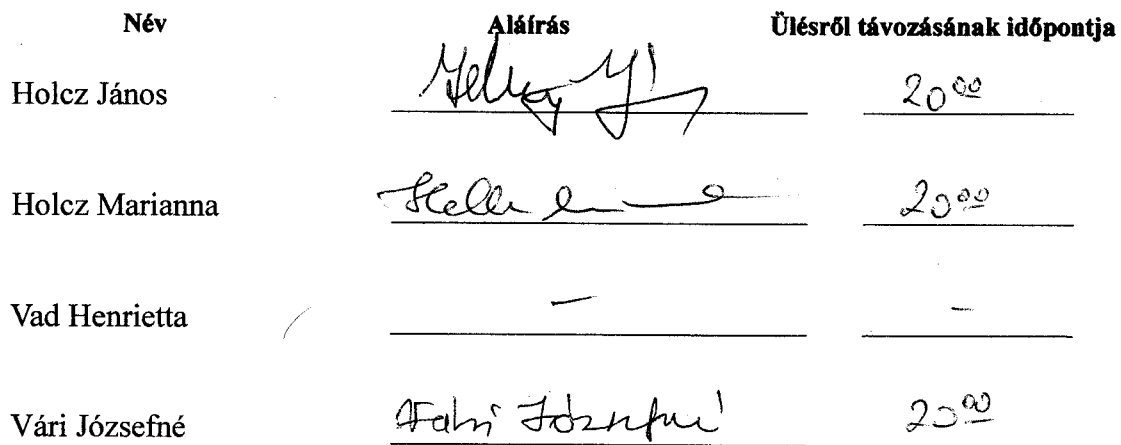 Név Aláírás Ülésről távozásának időpontja
Holcz János 20⁰⁰
Holcz Marianna 20⁰⁰
Vad Henrietta – –
Vári Józsefné Józsefné 20⁰⁰